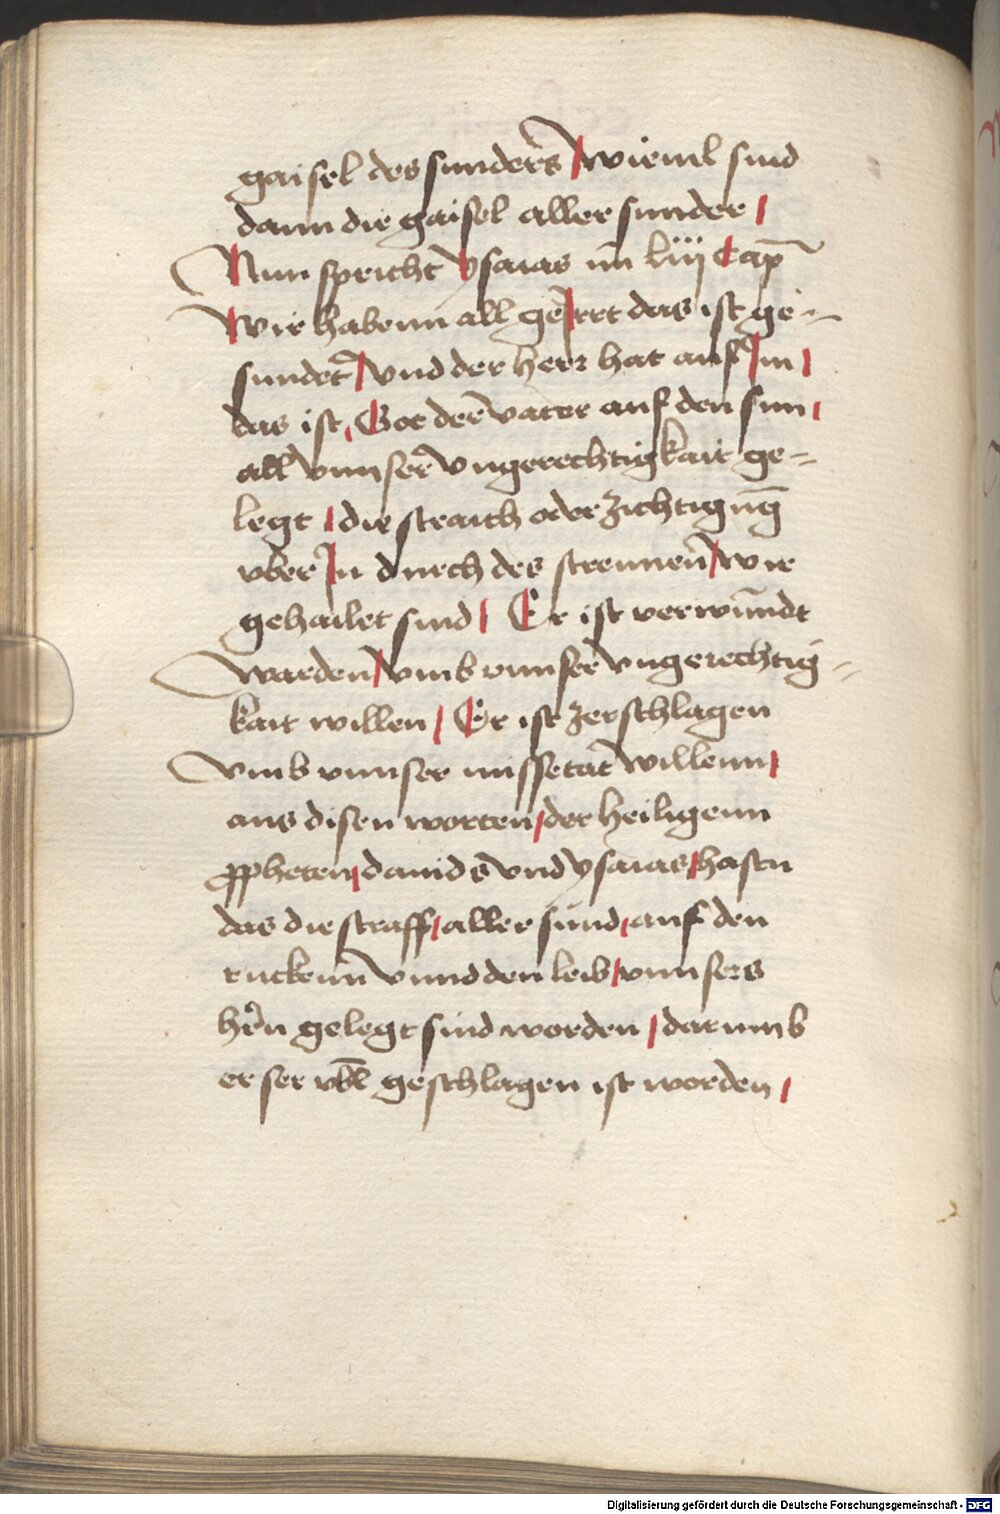 gaisel des sunders wieuil sind
dann die gaisel aller sunder /
Nun spricht ysaias im liij Cap̄
Wir habenn all geirrt das ist ge-
sundet / vnd der herr hat auf In /
das ist / Got der vater auf den sun /
all vnnser vngerechtigkait ge=
legt / die straich oder zichtigūg
vber In durch des stremen wir
gehailet sind / Er ist verwundt
warden / vmb vnnser vngerechtig=
kait willen / Er ist zerschlagen
vmb vnnser missetat willenn /
aus disen worten / der heiligenn
ppheten / dauids vnd ysaias / hastu
das die straff / aller sünd / auf den
ruckenn vnnd den leib / vnnsers
hrn gelegt sind worden / darumb
er ser vbl geschlagen ist worden /
Digitalisierung gefördert durch die Deutsche Forschungsgemeinschaft - DFG